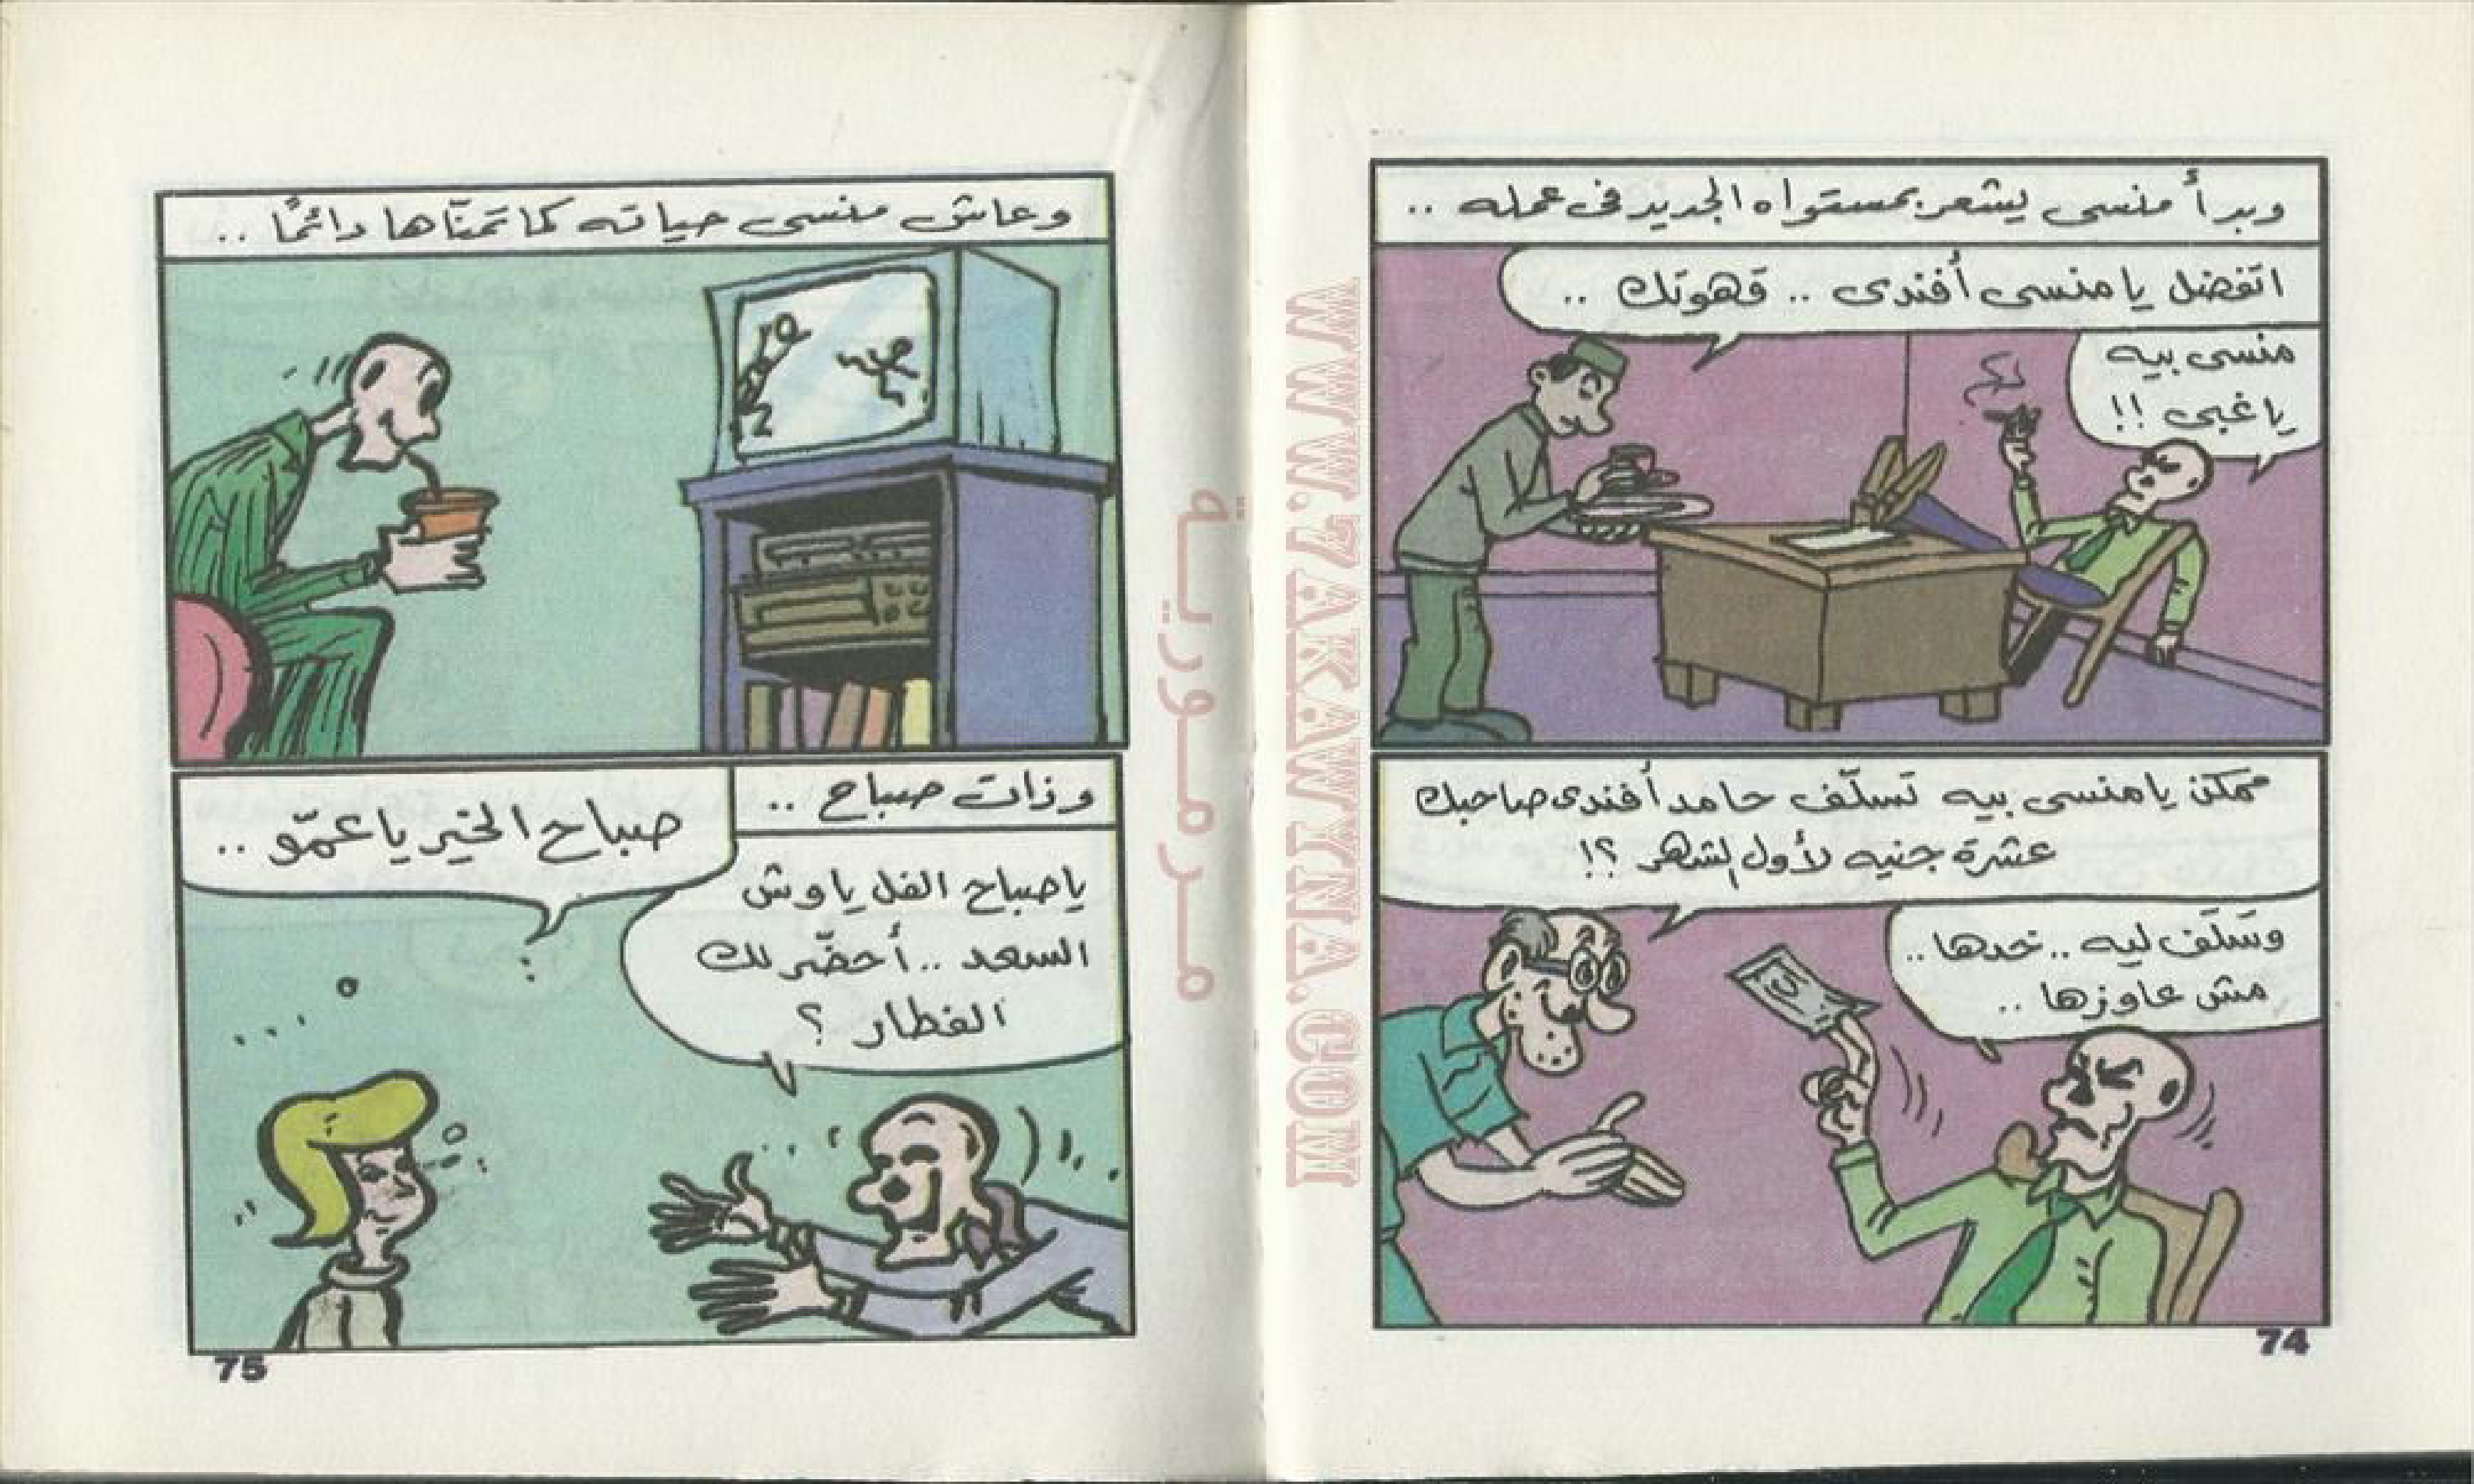 وبدأ منسى يشعر بمستواه الجديد فى عمله ..
اتفضل يا منسى أفندى .. قهوتك ..
منسى بيه
يا غبى !!
ممكن يا منسى بيه تسلّف حامد أفندى صاحبك
عشرة جنيه لأول الشهر ؟!
وسَلَف ليه .. خدها ..
مش عاوزها ..
74
وعاش منسى حياته كما تمنّاها دائمًا ..
وذات صباح ..
صباح الخير يا عمّو ..
يا صباح الفل يا وش
السعد .. أحضّر لك
الفطار ؟
75
مرمورية
WWW.7AKAWYNA.COM